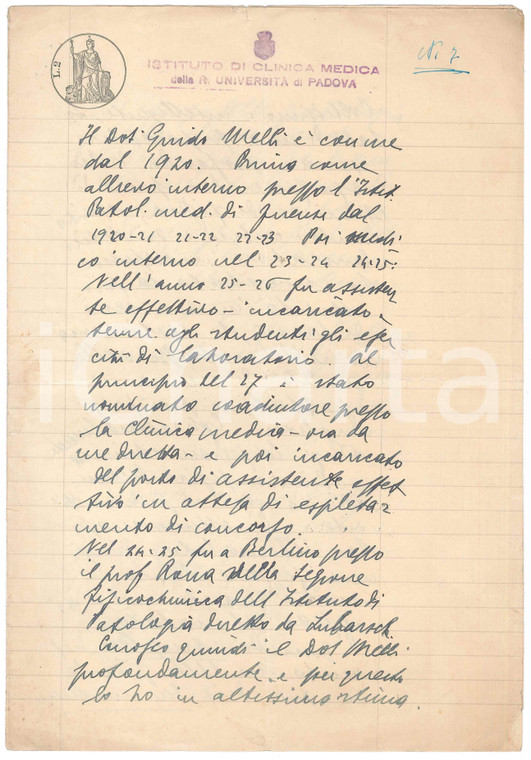 L.2
ISTITUTO DI CLINICA MEDICA
della R. UNIVERSITÀ di PADOVA
N. 7
Il Dot Guido Melli è con me
dal 1920. Prima come
allievo interno presso l'Istit.
Patol. med. di Firenze dal
1920-21 21-22 22-23 Poi medi
co interno nel 23-24 24-25.
Nell'anno 25-26 fu assisten
te effettivo - incaricato
tenne agli studenti gli eser
cizi di laboratorio. Al
principio del 27 è stato
nominato coadiutore presso
la Clinica medica - ora da
me diretta - e poi incaricato
del posto di assistente effet
tivo in attesa di espleta=
mento di concorso.
Nel 24-25 fu a Berlino presso
il prof Rona nella Sezione
fisicochimica dell'Istituto di
Patologia diretto da Lubarsch.
Conosco quindi il Dot Melli
profondamente e per questo
lo ho in altissima stima.